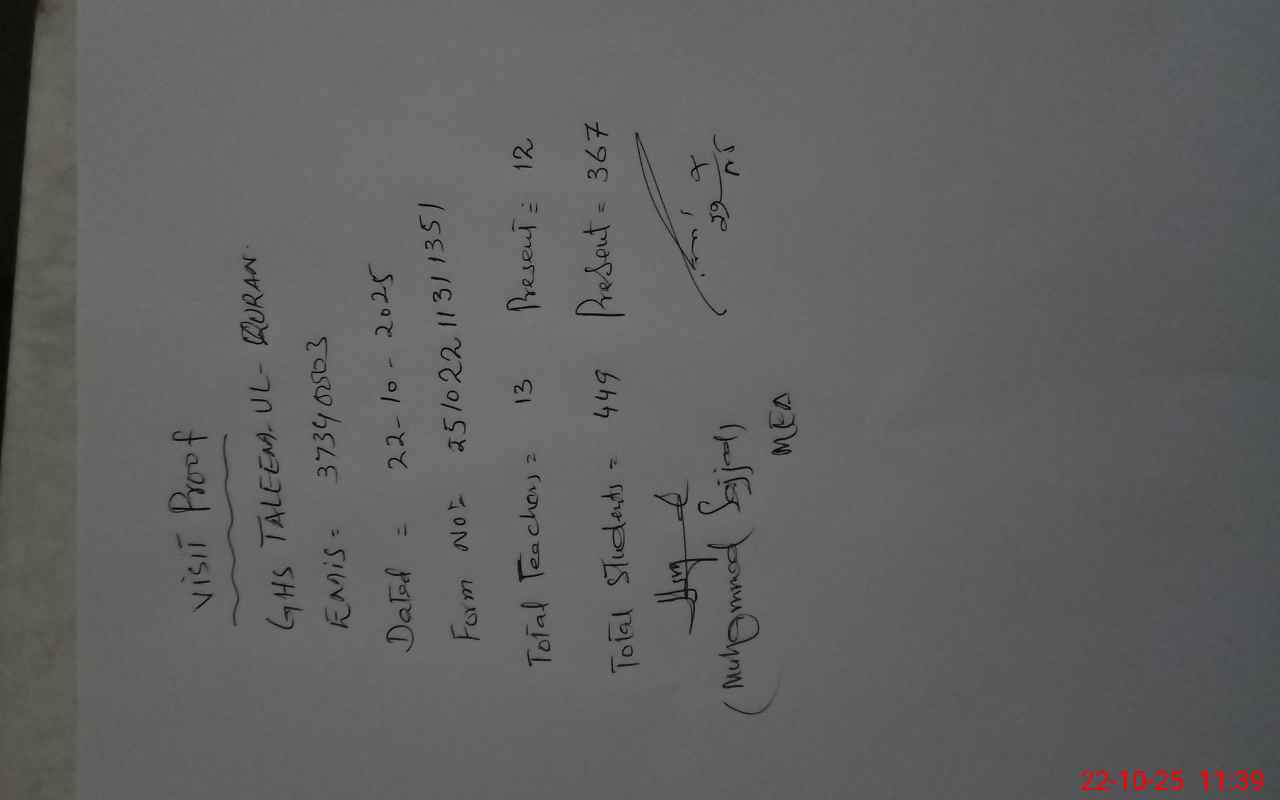 Visit Proof
GHS TALEEM-UL-QURAN.
EMIS = 37340503
Dated = 22-10-2025
Form No:= 2510221131 1351
Total Teachers = 13 Present = 12
Total Students = 449 Present = 367
(Muhammad Sajjad)
MEA
22-10-25 11:39